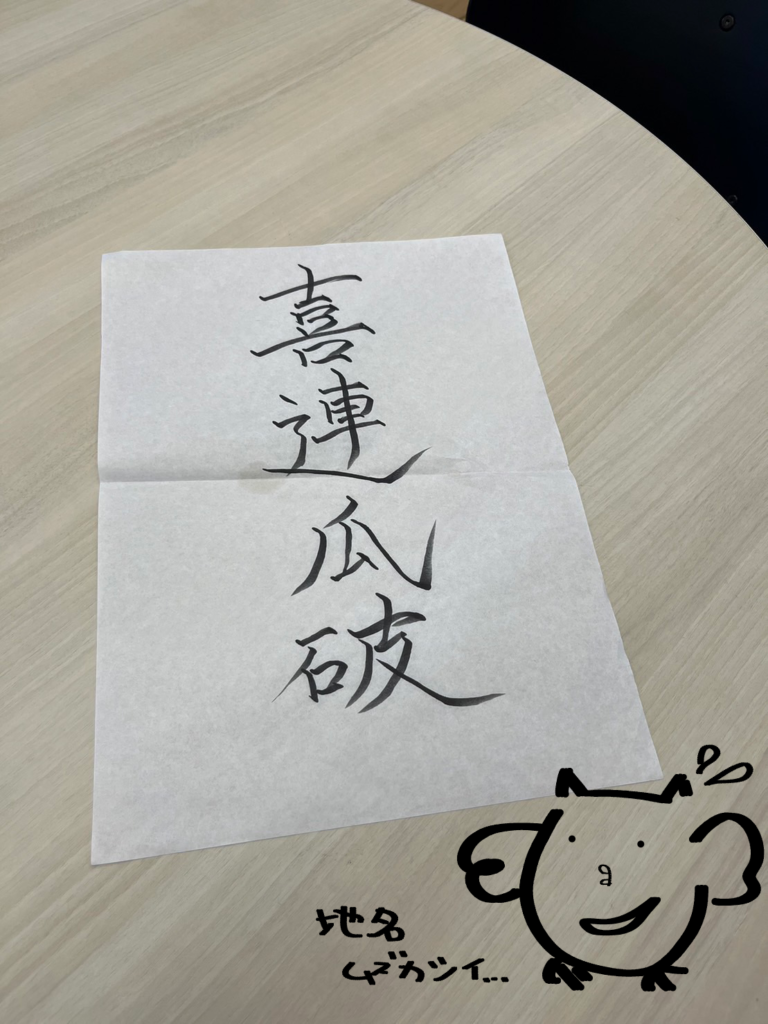 喜連瓜破
地名
ムズカシイ...